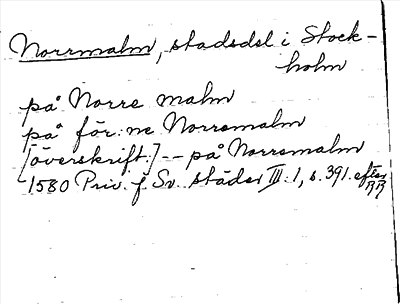 Norrmalm, stadsdel i Stock-
holm
på Norre malm
på för: ne Norremalm
[överskrift:] -- på Norremalm
1580 Priv. f Sv. städer III: 1, s. 391. efter
RR